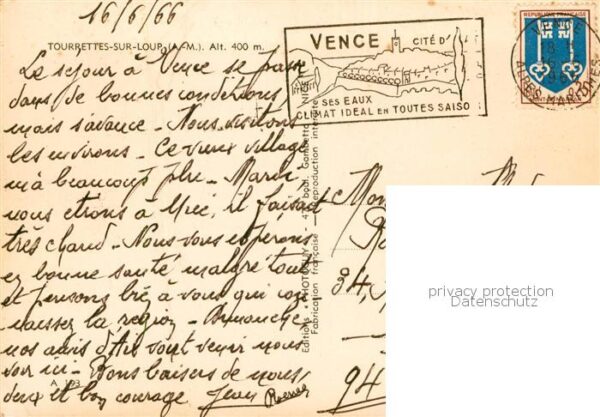 16/6/66
TOURRETTES-SUR-LOUP (A.-M.). Alt. 400 m.
Le séjour à Vence se passe
dans de bonnes conditions
mais s'avance - Nous visitons
les environs - Ce vieux village
m'a beaucoup plu - Mardi
nous étions à Nice, il faisait
très chaud - Nous vous espérons
en bonne santé malgré tout
et pensons bien à vous qui con
naissez la région - Dimanche
nos amis d'Aix vont venir nous
voir ici - Bons baisers de nous
deux et bon courage Jean
A 193
VENCE CITÉ D'
SES EAUX
CLIMAT IDEAL EN TOUTES SAISO
REPUBLIQUE FRANÇAISE
ALPES MARITIMES
Fabrication française - Reproduction interdite
Mon
34
94
privacy protection
Datenschutz